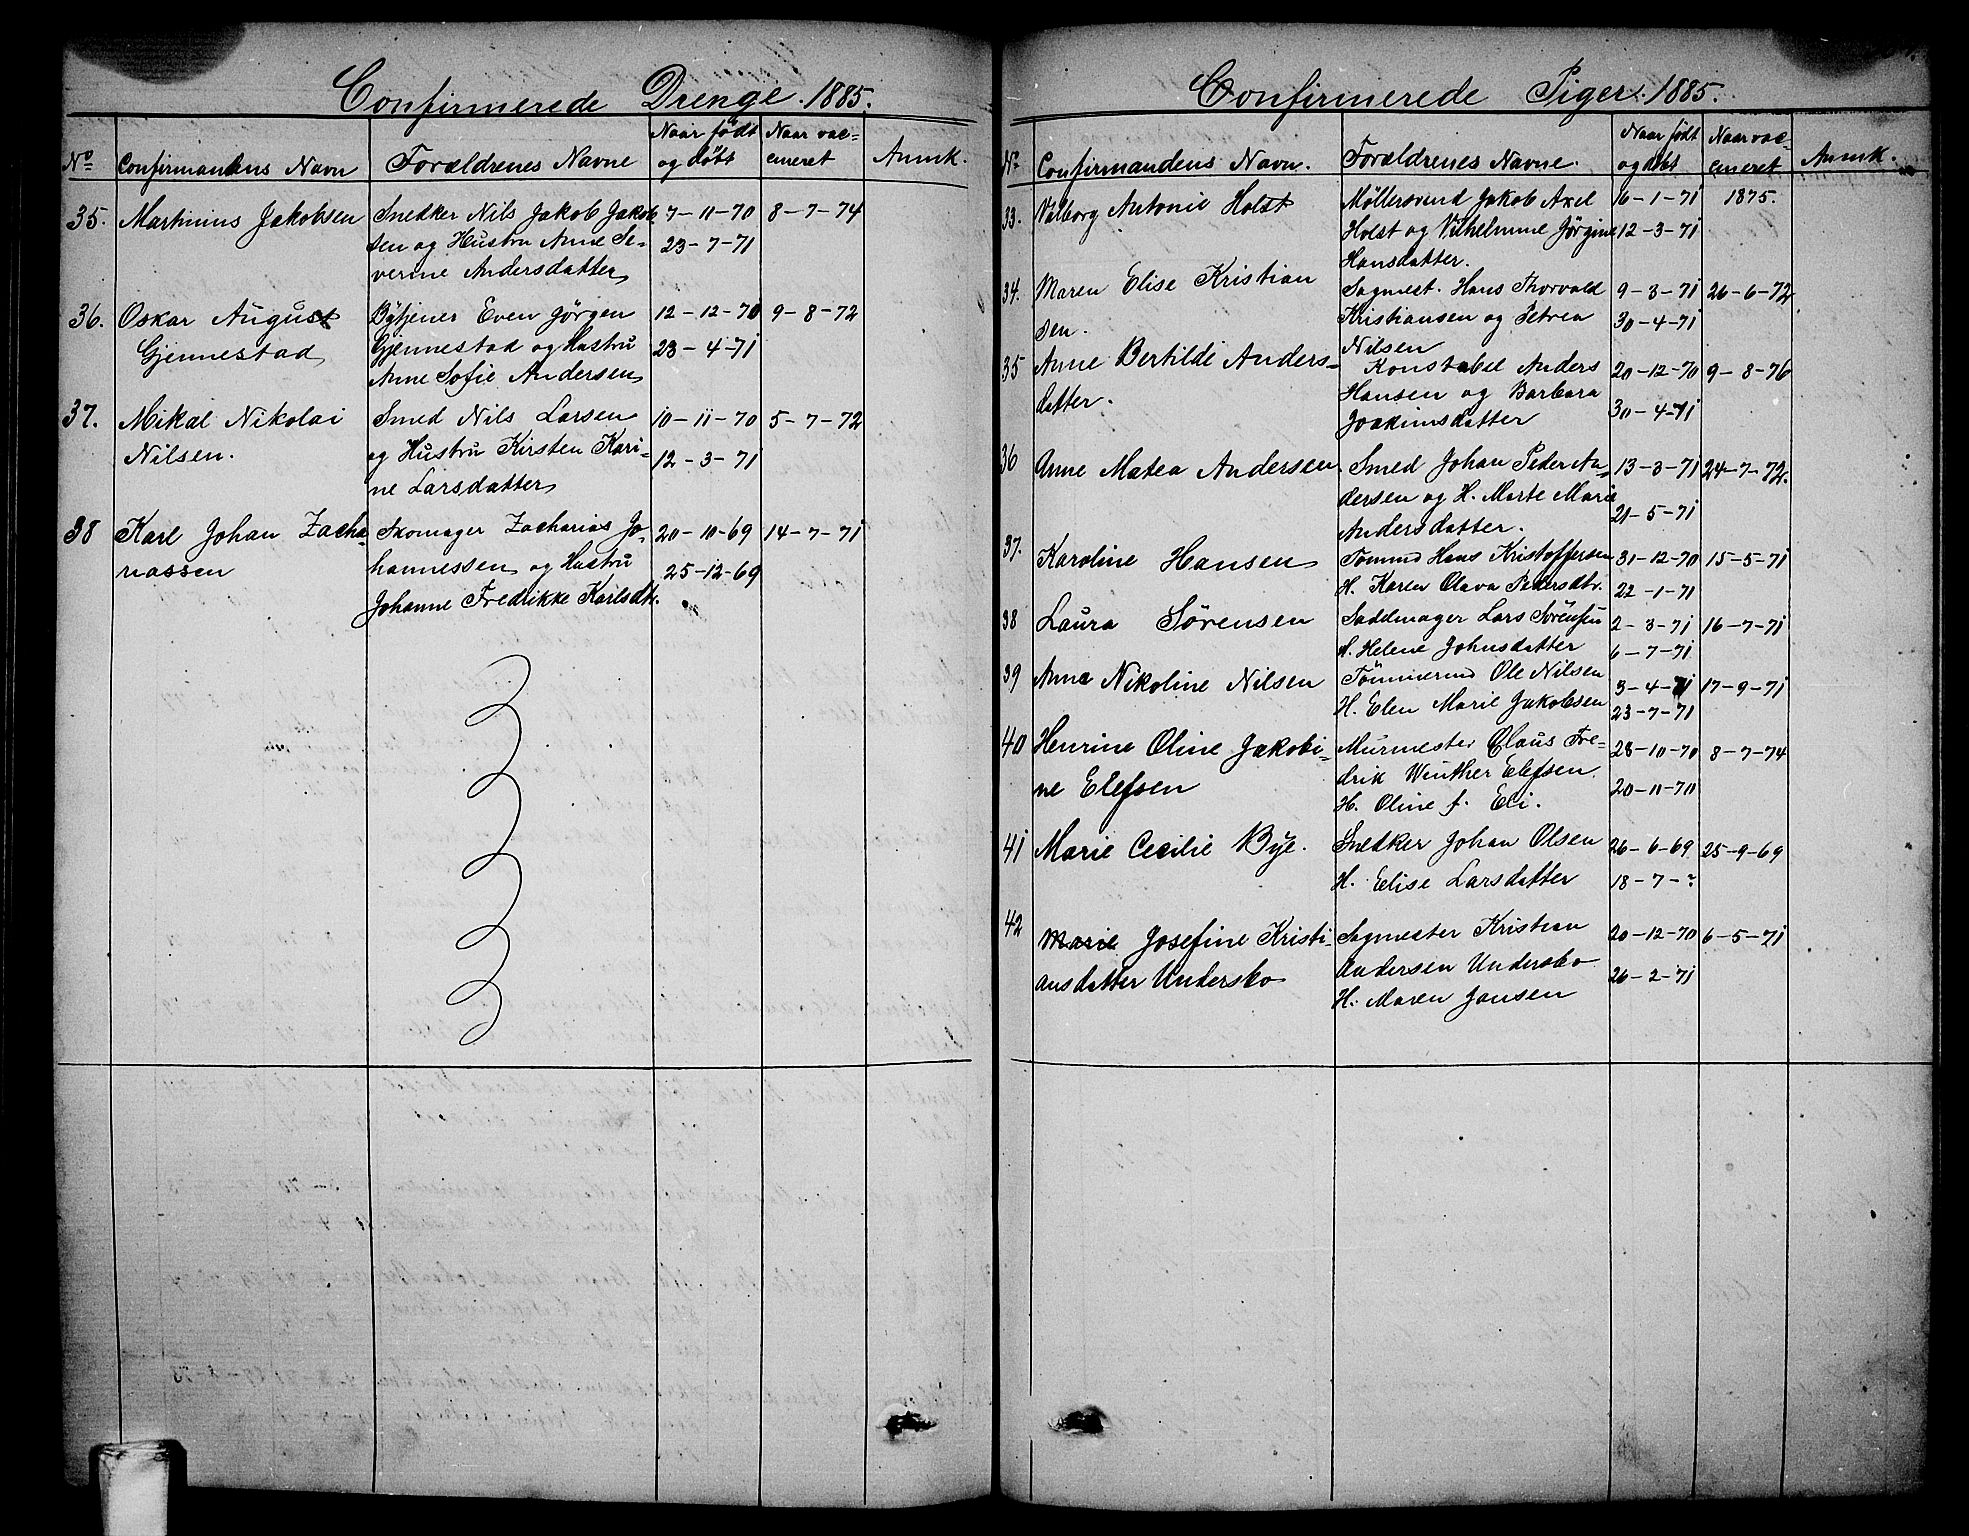 Confirmerede Drenge 1885.
No Confirmandens Navn Forældrenes Navne Naar født og døbt Naar vaccineret Anmk.
35. Martinius Jakobsen Snedker Nils Jakob Jakob- 7-11-70 8-7-74
sen og Hustru Anne Se- 23-7-71
verine Andersdatter
36. Oskar August Bytjener Even Jørgen 12-12-70 9-8-72
Gjennestad Gjennestad og Hustru 23-4-71
Anne Sofie Andersen
37. Mikal Nikolai Smed Nils Larsen 10-11-70 5-7-72
Nilsen. og Hustru Kirsten Kari- 12-3-71
ne Larsdatter
38 Karl Johan Zacha- Skomager Zacharias Jo- 20-10-69 14-7-71
riassen hannessen og Hustru 25-12-69
Johanne Fredrikke Karlsdtr.
Confirmerede Piger 1885.
No Confirmandens Navn. Forældrenes Navne. Naar født og døbt Naar vaccineret Anmk.
33. Valborg Antonie Holst Møllersvend Jakob Axel 16-1-71 1875.
Holst og Vilhelmine Jørgine 12-3-71
Hansdatter.
34. Maren Elise Kristian Sagmest. Hans Thorvald 9-3-71 26-6-72
sen. Kristiansen og Petrea 30-4-71
Nilsen
35 Anne Bertilde Anders- Konstabel Anders 20-12-70 9-8-76
datter. Hansen og Barbara 30-4-71
Joakimsdatter
36 Anne Matea Andersen Smed Johan Peder An- 13-3-71 24-7-72.
dersen og H. Marte Marie 21-5-71
Andersdatter.
37. Karoline Hansen Tømmd Hans Kristoffersen 31-12-70 15-5-71
H. Karen Olava Pedersdtr. 22-1-71
38 Laura Sørensen Sadelmager Lars Sørensen 2-3-71 16-7-71
H. Helene Johnsdatter 6-7-71
39 Anne Nikoline Nilsen Tømmermd Ole Nilsen 3-4-71 17-9-71
H. Elen Marie Jakobsen 23-7-71
40 Henrine Oline Jakobi- Murmester Claus Fre- 28-10-70 8-7-74
ne Elefsen drik Winther Elefsen 20-11-70
H. Oline f. Eli.
41 Marie Cecilie Bye. Snedker Johan Olsen 26-6-69 25-9-69
H. Elise Larsdatter 18-7-?
42 Marie Josefine Kristi- Sagmester Kristian 20-12-70 6-5-71
ansdatter Undersbo Andersen Undersbo 26-2-71
H. Maren Jansen